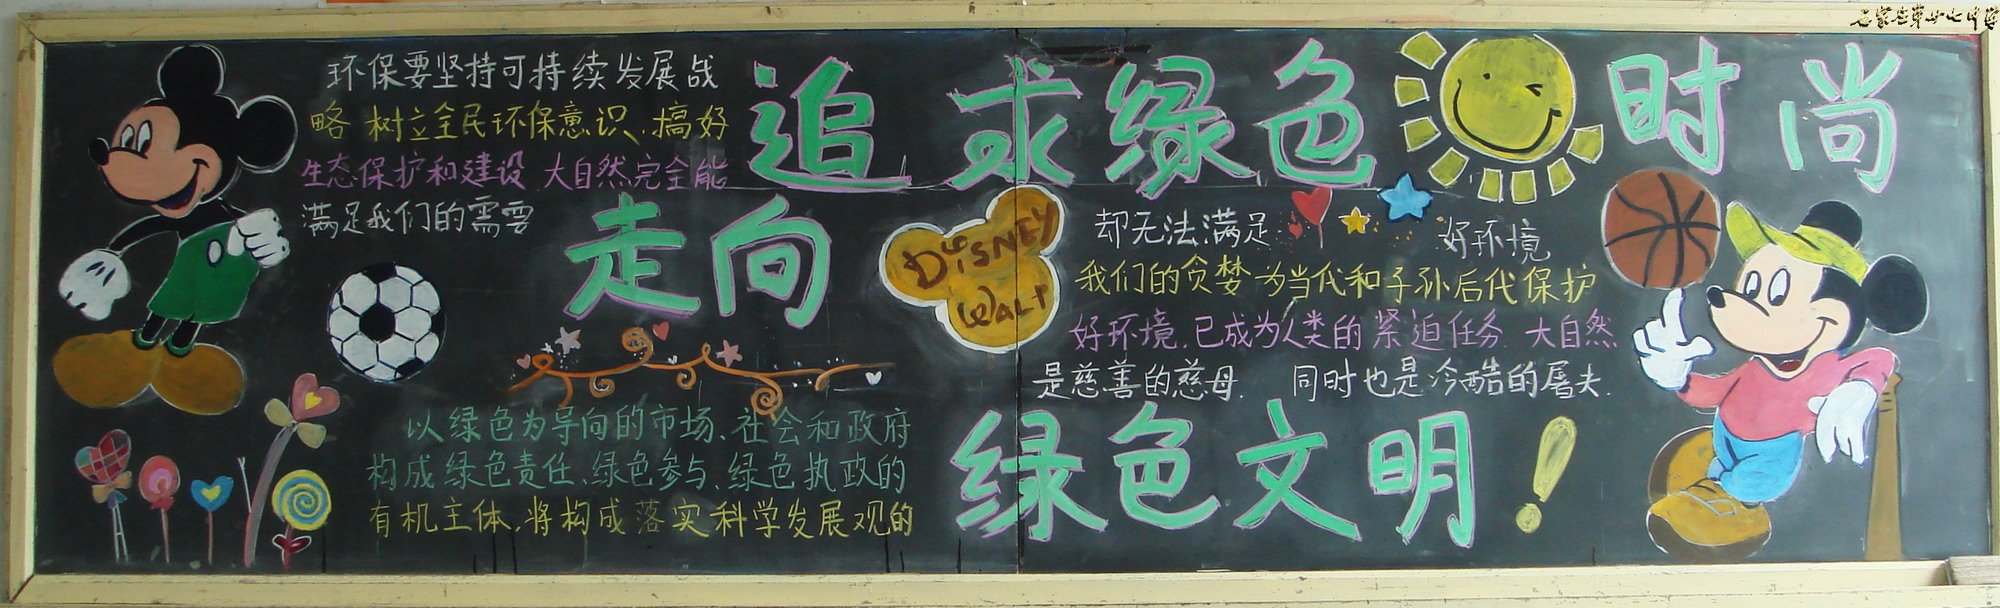 石家庄第廿七中学
追求绿色时尚
走向
绿色文明！
环保要坚持可持续发展战
略 树立全民环保意识、搞好
生态保护和建设 大自然完全能
满足我们的需要
DISNEY
WALT
却无法满足 好环境
我们的贪婪 为当代和子孙后代保护
好环境，已成为人类的紧迫任务 大自然
是慈善的慈母， 同时也是冷酷的屠夫.
以绿色为导向的市场、社会和政府
构成绿色责任、绿色参与、绿色执政的
有机主体，将构成落实科学发展观的